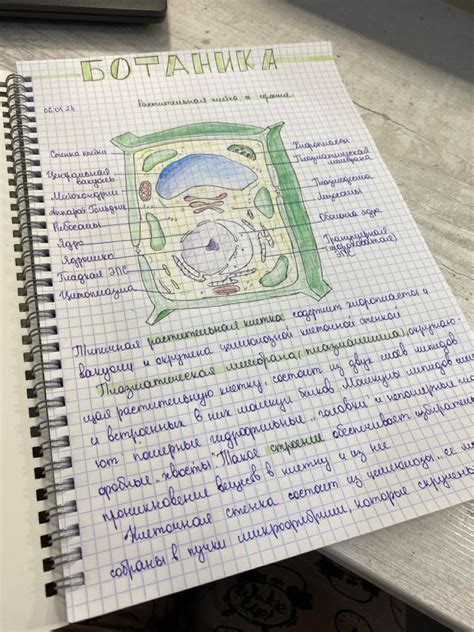 БОТАНИКА
06.01.24
Растительная клетка, её строение
Стенка клетки
Центральная
вакуоль
Митохондрии
Аппарат Гольджи
Рибосомы
Ядро
Ядрышко
Гладкая ЭПС
Цитоплазма
Хлоропласты
Плазматическая
мембрана
Плазмодесма
Лизосомы
Оболочка ядра
Гранулярная
(шероховатая)
ЭПС
Типичная растительная клетка содержит хлоропласты и
вакуоли и окружена целлюлозной клеточной стенкой
Плазматическая мембрана (плазмалемма), окружаю-
щая растительную клетку, состоит из двух слоев липидов
и встроенных в них молекул белков. Молекулы липидов име
ют полярные гидрофильные „головки" и неполярные гид
рофобные „хвосты". Такое строение обеспечивает избиратель
проникновение веществ в клетку и из нее.
Клеточная стенка состоит из целлюлозы, ее мо
собраны в пучки микрофибрилл, которые скручены